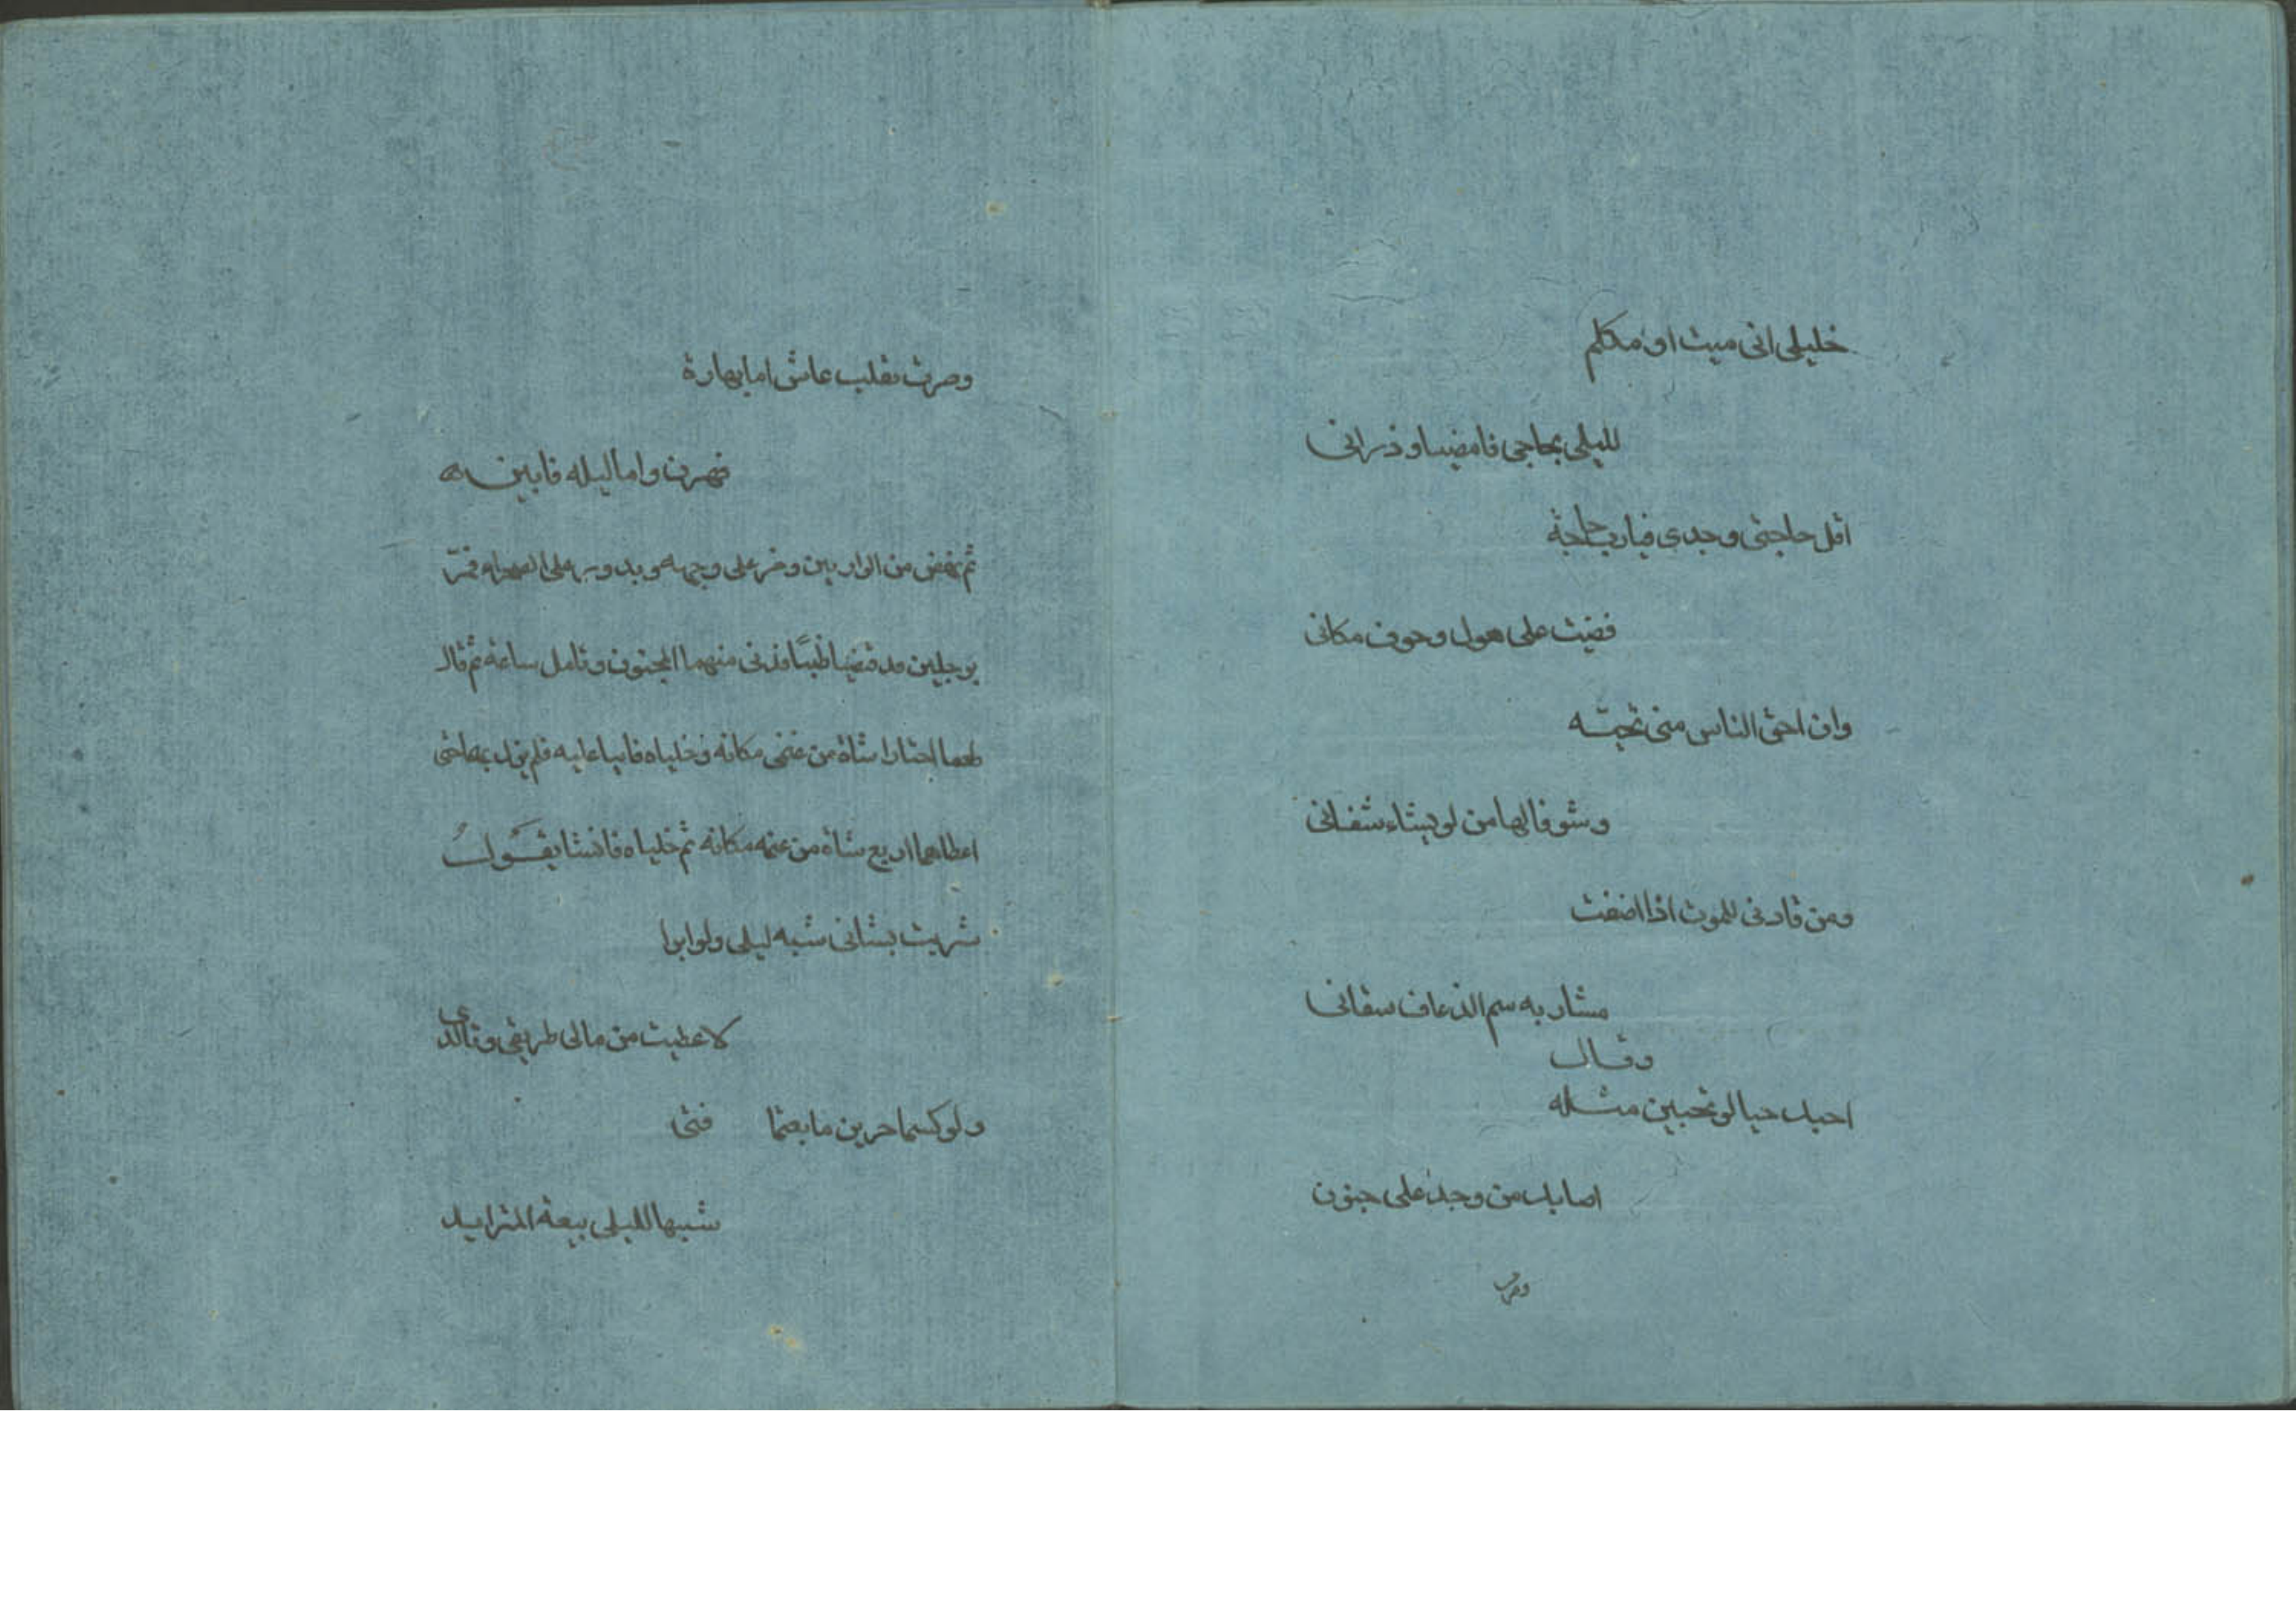 خليلى انى ميت او مكلم
لليلى بحاجى فامضيا وذرانى
اقل حاجتى وحدى فيارب حاجة
قضيت على هول وخوف مكانى
وان احق الناس منى تحية
وشوقا اليها من لو يشاء شفانى
ومن قادنى للموت اذا
مشاربه سم الذعاف سقانى
وقال
احبك حبا لو تحبين مثله
اصابك من وجد على جنون
وصرت
وصرت بقلب عاش اما نهارة
واما ليله فانين
ثم نهض من الواديين ومر على وجهه ويدور على الصحراء فمرّ
برجلين قد قنصا ظبيًا فدنى منهما المجنون وتامل ساعة ثم قال
لهما اختارا شاة من غنمى مكانه وخلياه فابيا عليه فلم يزل بهما حتى
اعطاهما اربع شاة من غنمه مكانه ثم خلياه فانشا يقول
شريت بشانى شبه ليلى ولو ابوا
لاعطيت من مالى طريفى وتالدى
ولو كنتما حرين ما بعتما فتى
شبيها لليلى بيعة المتزايد